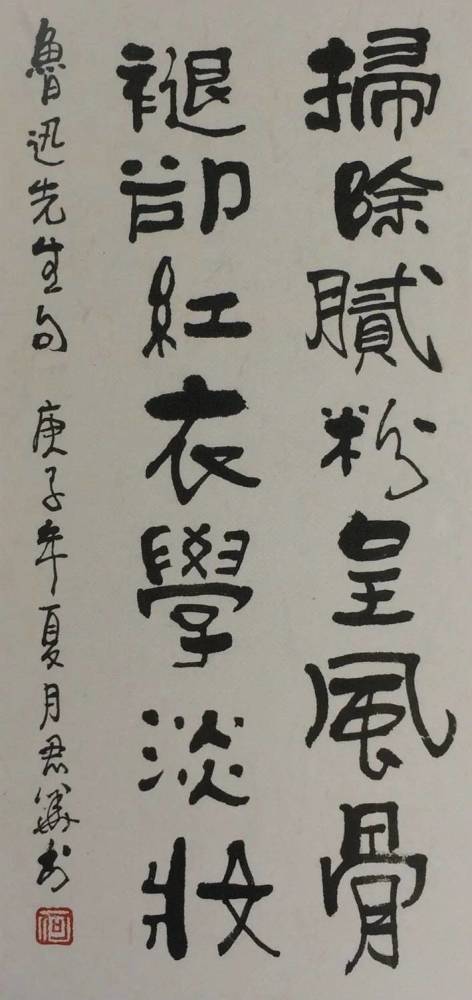 掃除膩粉呈風骨
褪卻紅衣學淡妝
魯迅先生句 庚子年夏月君華书
何